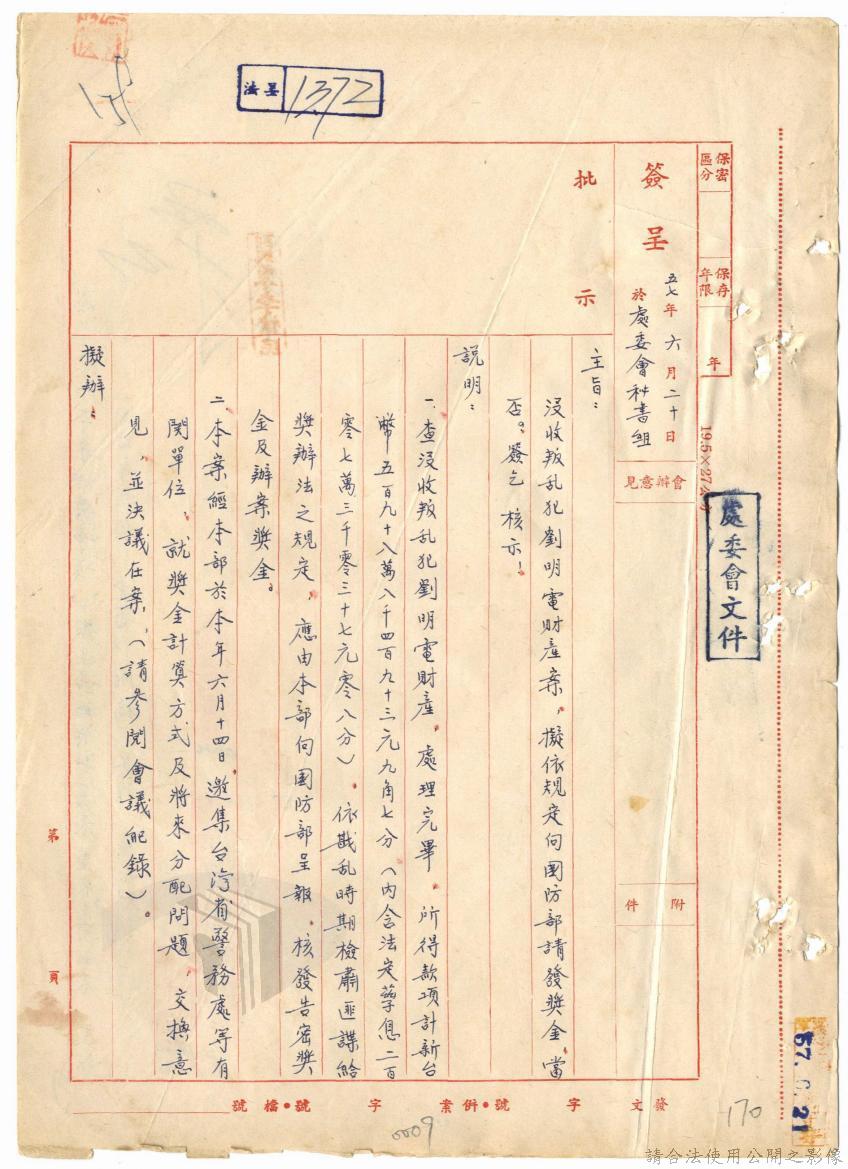 法呈 1372
保密區分
保存年限
年
19.5×27公分
處委會文件
簽呈
五七年六月二十日
於處委會秘書組
會辦意見
附件
批示
主旨：
沒收叛乱犯劉明電財產案，擬依規定向国防部請發奖金，當
否。簽乞 核示！
説明：
一、查沒收叛乱犯劉明電財產，處理完畢，所得款項計新台
幣五百九十八萬八千四百九十三元九角七分（內含法定孳息二百
零七萬三千零三十七元零八分），依戡乱時期檢肅匪諜給
奖辦法之規定，應由本部向国防部呈報，核發告密奖
金及辦案奖金。
二、本案經本部於本年六月十四日，邀集台湾省警務處等有
関單位，就奖金計算方式及將來分配問題，交換意
見，並決議在案，（請參閱會議紀錄）。
擬辦：
第 頁
發文 字 號•併案 字 號•檔號
57.6.21
170
0009
請合法使用公開之影像